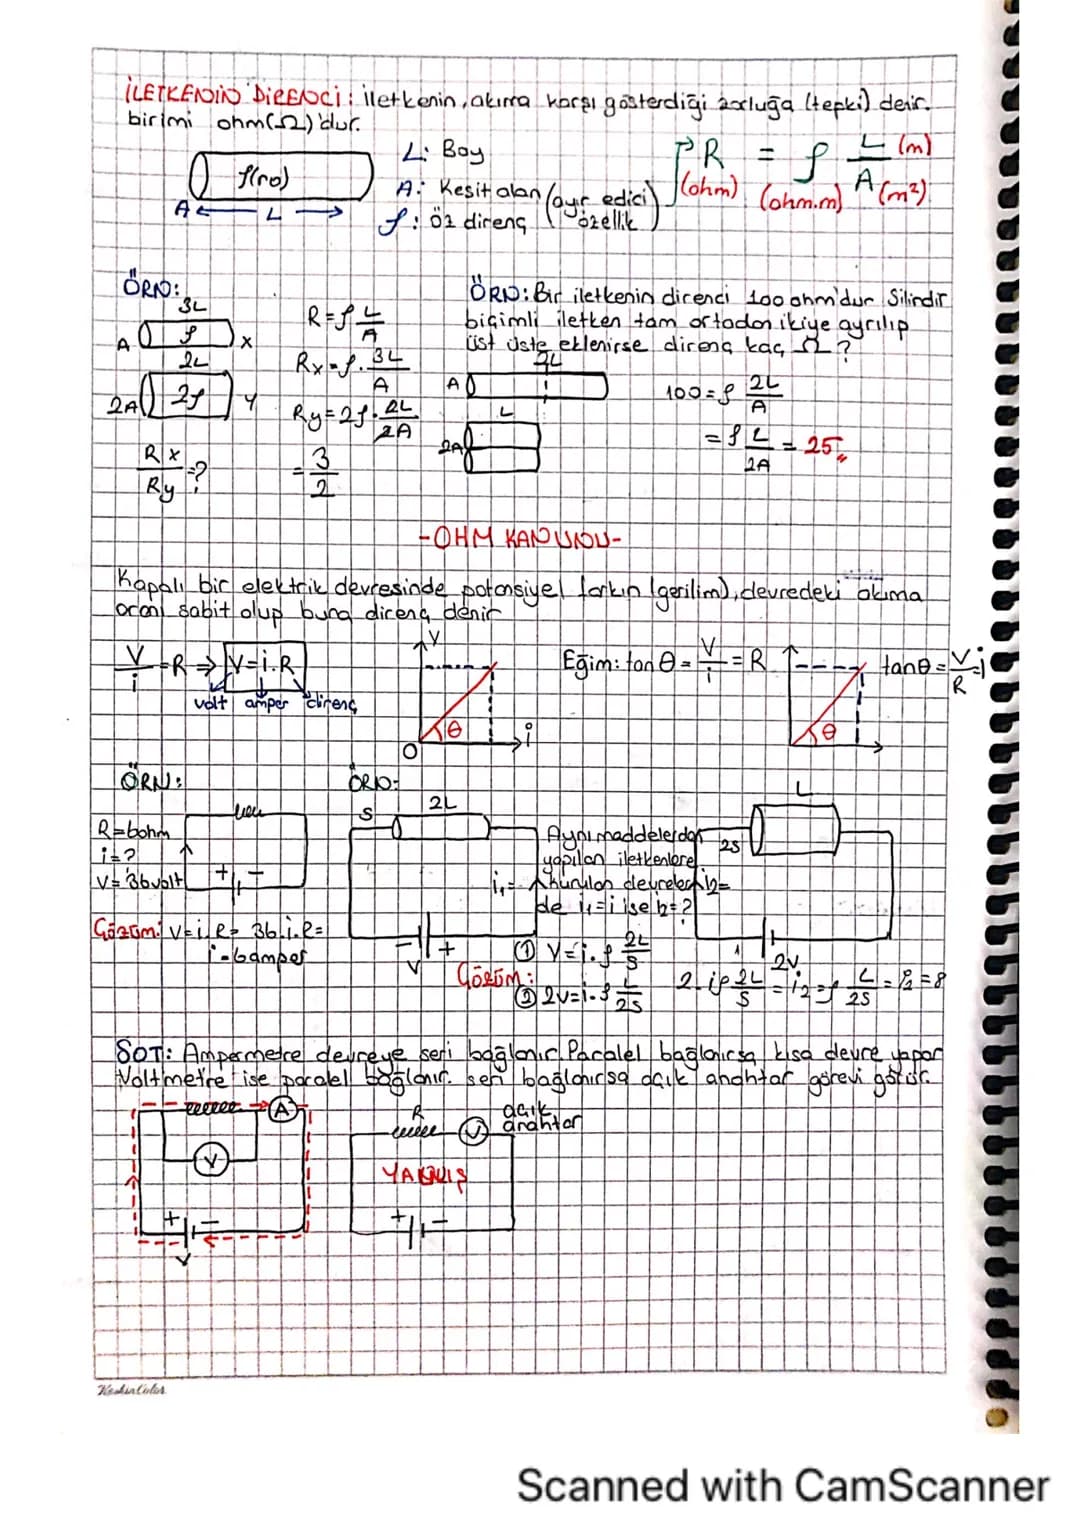 İLETKENİN DİRENCİ: iletkenin, akıma karşı gösterdiği zorluğa (tepki) denir.
birimi ohm(Ω)'dur.
ρ(ro)
A L
L: Boy
A: Kesit alan
ρ: Öz direnç (ayır edici özellik)
R = ρ L/A
(ohm) (ohm.m) (m) (m²)
ÖRN:
3L
A ρ X
2L
2A 2ρ Y
Rx/Ry = ?
R = ρ L/A
Rx = ρ. 3L/A
Ry = 2ρ. 2L/2A
= 3/2
ÖRN: Bir iletkenin direnci 100 ohm'dur Silindir
biçimli iletken tam ortadan ikiye ayrılıp
üst üste eklenirse direnç kaç Ω?
2L
A
L
2A
100 = ρ 2L/A
= ρ L/2A = 25
-OHM KANUNU-
Kapalı bir elektrik devresinde potansiyel farkın (gerilim), devredeki akıma
oranı sabit olup buna direnç denir
V/i = R ⇒ V=i.R
volt amper direnç
V
θ
O i
Eğim: tanθ = V/i = R
θ
tanθ = V/R = i
ÖRN:
R=6ohm
i=?
V=36volt
+ -
Çözüm: V=i.R= 36.i.R=
i=6amper
ÖRN:
S 2L
- +
V
i₁=
Aynı maddelerden
yapılan iletkenlere
kurulan devrelerde i₁=i ise i₂=?
i₂=
L
2S
2V
Çözüm:
① V=i.ρ 2L/S
② 2V=i.ρ L/2S
2.iρ 2L/S = i₂=ρ L/2S = i₂=8
NOT: Ampermetre devreye seri bağlanır. Paralel bağlanırsa kısa devre yapar
Voltmetre ise paralel bağlanır. seri bağlanırsa açık anahtar görevi görür.
A
V
+ -
V
R
V
açık
anahtar
YANLIŞ
+ -
KeskinColor
Scanned with CamScanner